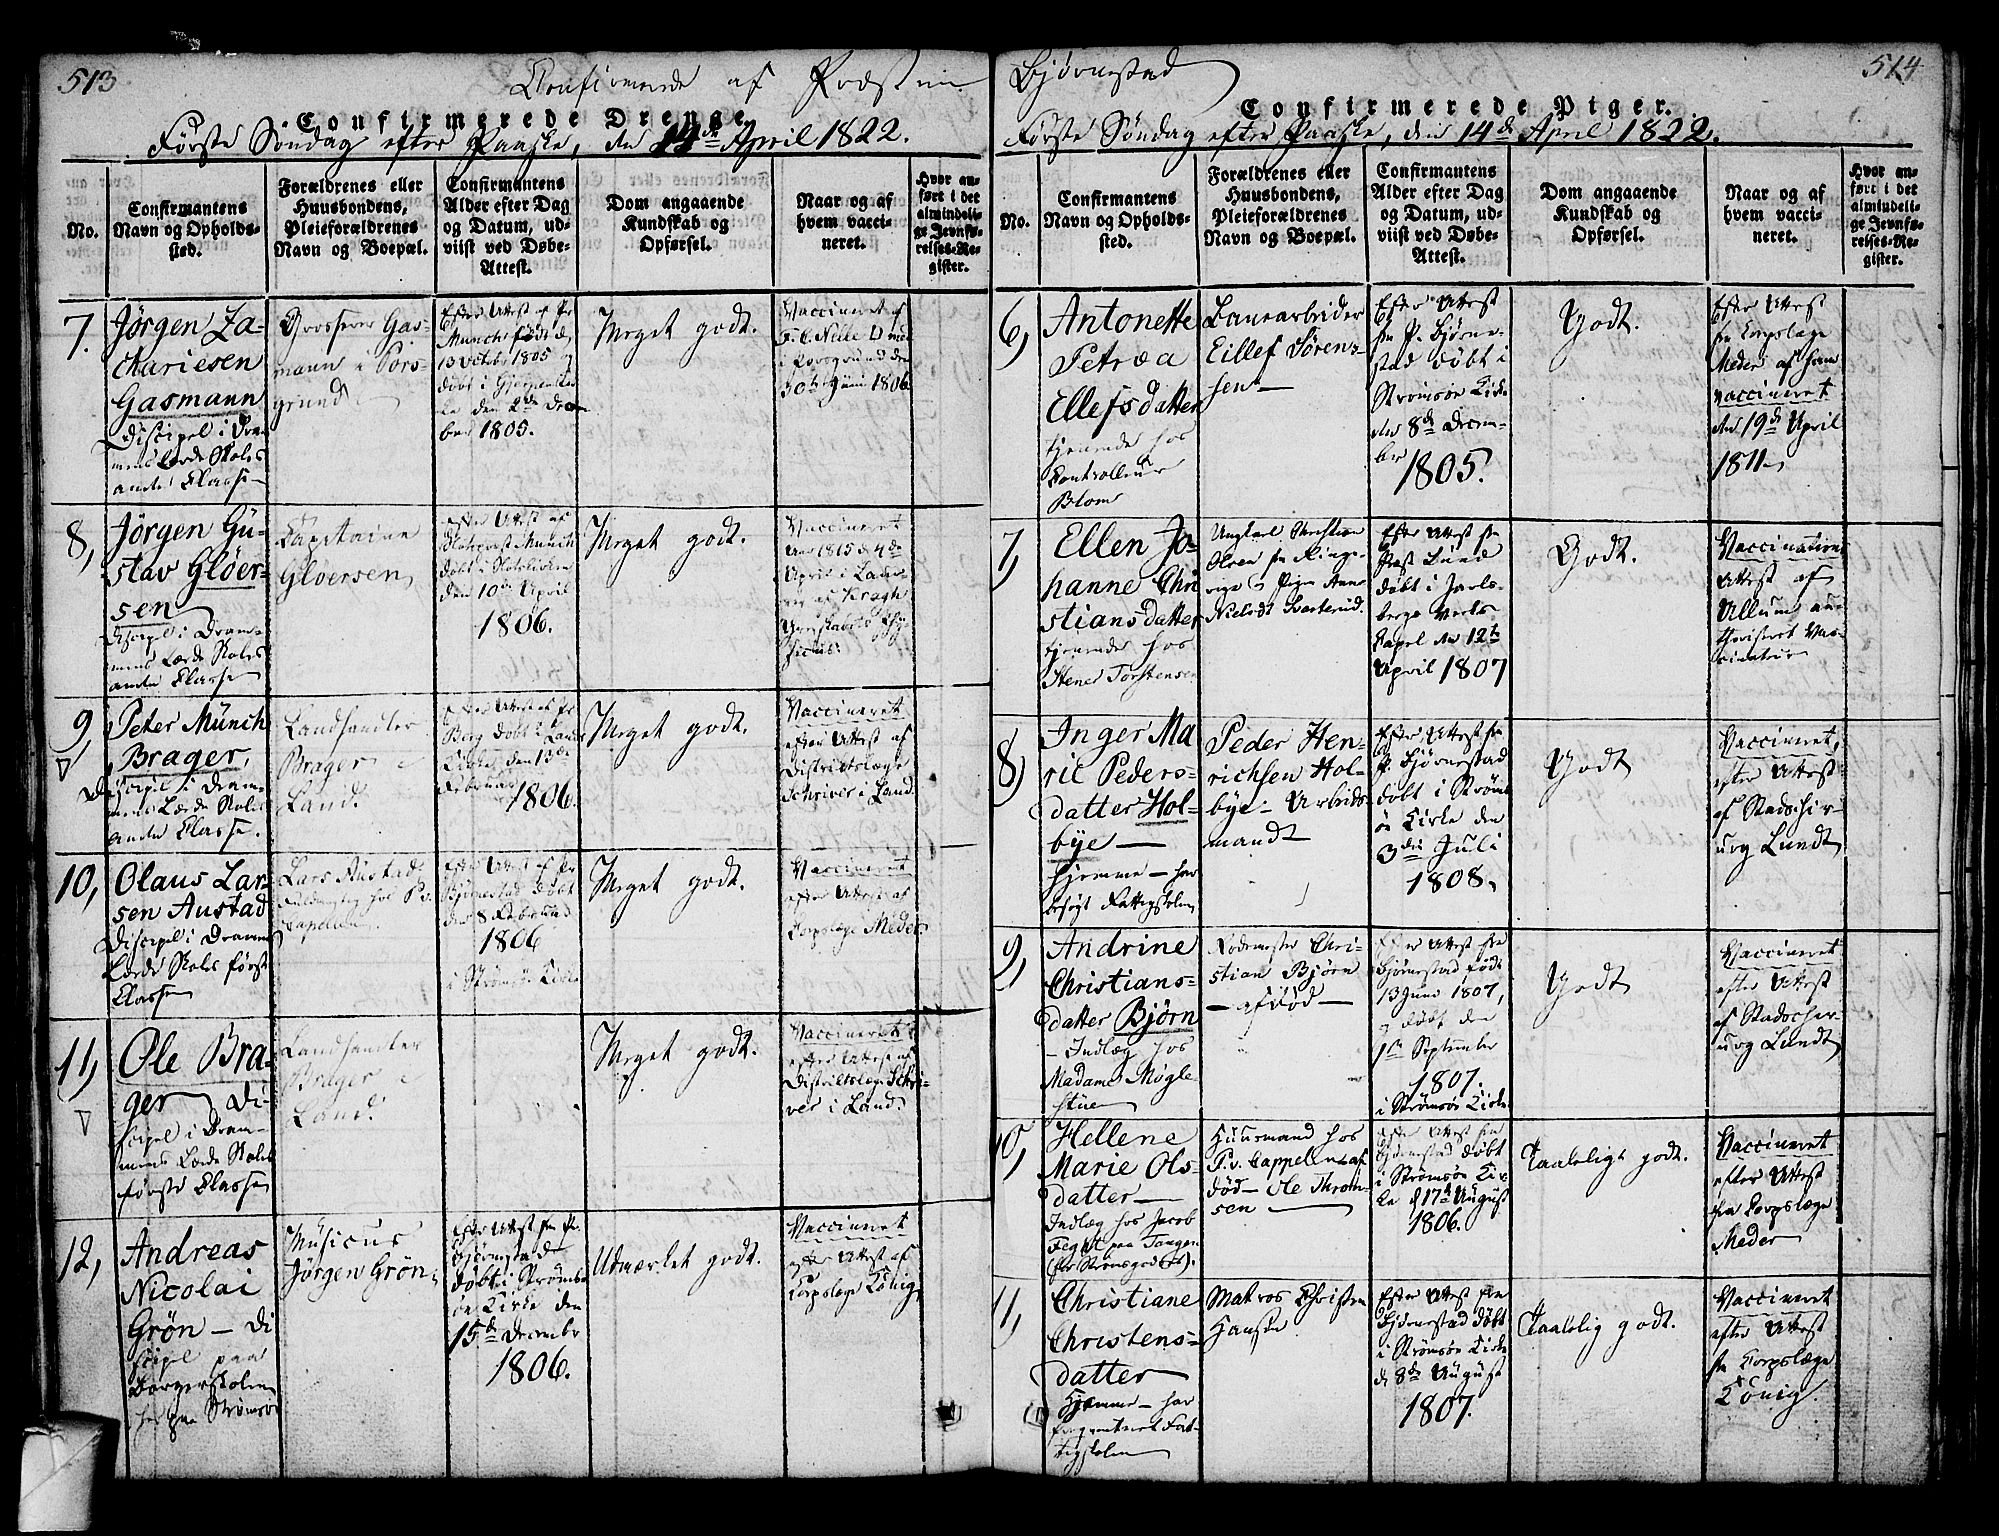 513
Confirmerede af Præsten
Confirmerede Drenge.
Første Søndag efter Paaske, den 14de April 1822.
No.
Confirmantens
Navn og Opholds-
sted.
Forældrenes eller
Huusbondens,
Pleieforældrenes
Navn og Boepæl.
Confirmantens
Alder efter Dag
og Datum, ud-
viist ved Døbe-
Attest.
Dom angaaende
Kundskab og
Opførsel.
Naar og af
hvem vacci-
neret.
Hvor an-
ført i det
almindeli-
ge Jevnfø-
relses-Re-
gister.
7.
Jørgen Za-
chariesen
Gasmann
Discipel i Dram-
mens Lærde Skoles
anden Classe
Grosserer Gas-
mann i Pors-
grund
Efter Attest af Pr
Munch født d.
13 Octbr 1805 og
døbt i Gjerpens Kir-
ke den 2de Decem-
ber 1805.
Meget godt.
Vaccineret af
i Porsgrund den
30te Juni 1806
8,
Jörgen Gü-
stav Gløer-
sen
Discipel i Dram-
mens Lærde Skoles
anden Classe
Capitaine
Gløersen
Efter Attest af
Slotspræst Münch
døbt i Slotskirken
den 10de April
1806.
Meget godt.
Vaccineret
Aar 1815 d. 4de
April i Laur-
vig af Kragh
Grevskabets Phy-
sicus.
9,
Peter Münch
Brager,
Discipel i Dram-
mens Lærde Skoles
anden Classe.
Landhandler
Brager i
Land.
Efter Attest af Pr
Berg døbt i Lands
Kirke, den 13de
Februar 1806.
Meget godt.
Vaccineret
efter Attest af
Districtslæge
Schriver i Land.
10,
Olaus Lar-
sen Austad
Discipel i Drammens
Lærde Skoles første
Classe
Lars Austad
Fuldmægtig hos P. v.
Capelen.
Efter Attest af Pr
Bjørnestad døbt
den 8 Februar
1806
i Strømsø Kirke
Meget godt.
Vaccineret
efter Attest af
Korpslæge Meder
11,
Ole Bra-
ger Di-
scipel i Dram-
mens Lærde Skoles
første Classe
Landhandler
Brager i
Land.
Meget godt.
Vaccineret
efter Attest af
Districtslæge Schri-
ver i Land.
12,
Andreas
Nicolai
Grön — Di
scipel paa
Borgerskolen
her paa Strømsø
Müsicus
Jörgen Grön
Efter Attest fra Pr.
Bjørnestad
døbt i Strøms-
øe Kirke den
15de Decembr
1806.
Udmærket godt.
Vaccineret
efter Attest af
Korpslæge König
514
Bjørnestad
Confirmerede Piger.
Første Søndag efter Paaske, den 14de April 1822.
No.
Confirmantens
Navn og Opholds-
sted.
Forældrenes eller
Huusbondens,
Pleieforældrenes
Navn og Boepæl.
Confirmantens
Alder efter Dag
og Datum, ud-
viist ved Døbe-
Attest.
Dom angaaende
Kundskab og
Opførsel.
Naar og af
hvem vacci-
neret.
Hvor an-
ført i det
almindeli-
ge Jevnfø-
relses-Re-
gister.
6,
Antonette
Petræa
Ellefsdatter
tjenende hos
Controlleur
Blom
Eillef Sören-
sen
Efter Attest
fra P. Bjørne-
stad døbt i
Strømsøe Kirke
den 8de Decem-
ber
1805.
Godt.
Efter Attest
fra Korpslæge
Meder af ham
vaccineret
den 19de April
1811
7,
Ellen Jo-
hanne Chri
stiansdatter
tjenende hos
Stener Torstensen
Ungkarl Christian
Olsen fra Ringe-
rige Pigen Anne
Nielsdt Svarterud.
Efter Attest fra
Præst Lund
døbt i Jarls-
bergs Verks
Kapel den 12te
April 1807
Godt.
Vaccinations
Attest af
Allum au-
thoriseret Vac-
cinatør
8,
Inger Ma
ril Peders-
datter Hol-
bye
Hjemme — har
besøgt Fattigskolen
Peder Hen-
richsen Hol-
bye - Arbeids-
mand
Efter Attest fra
P. Bjørnestad
døbt i Strøms
øe Kirke den
3die Juli
1808.
Godt
Vaccineret,
efter Attest
af Stadschir-
urg Lundt
9,
Andrine
Christians-
datter Bjørn
- Indlæg hos
Madame Møgle-
stüe
Rodemester Chri-
stian Bjørn
— afdöd —
Efter Attest fra
Bjørnestad født
13 Juni 1807,
og døbt den
1ste September
1807.
i Strømsøe Kirke
Godt
Vaccineret
efter Attest
af Stadschir-
urg Lundt
10,
Hellene
Marie Ols-
datter
Indlæg hos Jacob
Fegth paa Tangen
Huusmand hos
P. v. Cappelen af
død — Ole Thron-
sen
Efter Attest fra
Bjørnestad døbt
i Strømsøe Kir
ke d 17de August
1806.
Taaleligt godt.
Vaccineret
efter Attest
fra Korpslæge
Meder
11,
Christiane
Christens-
datter
Hjemme — har
frequenteret Fat-
tigskolen
Matros Christen
Hansen
Efter Attest fra
Bjørnestad døbt
i Strømsøe Kirke
d 8de August
1807.
Taalelig godt.
Vaccineret
efter Attest
fra Korpslæge
König.